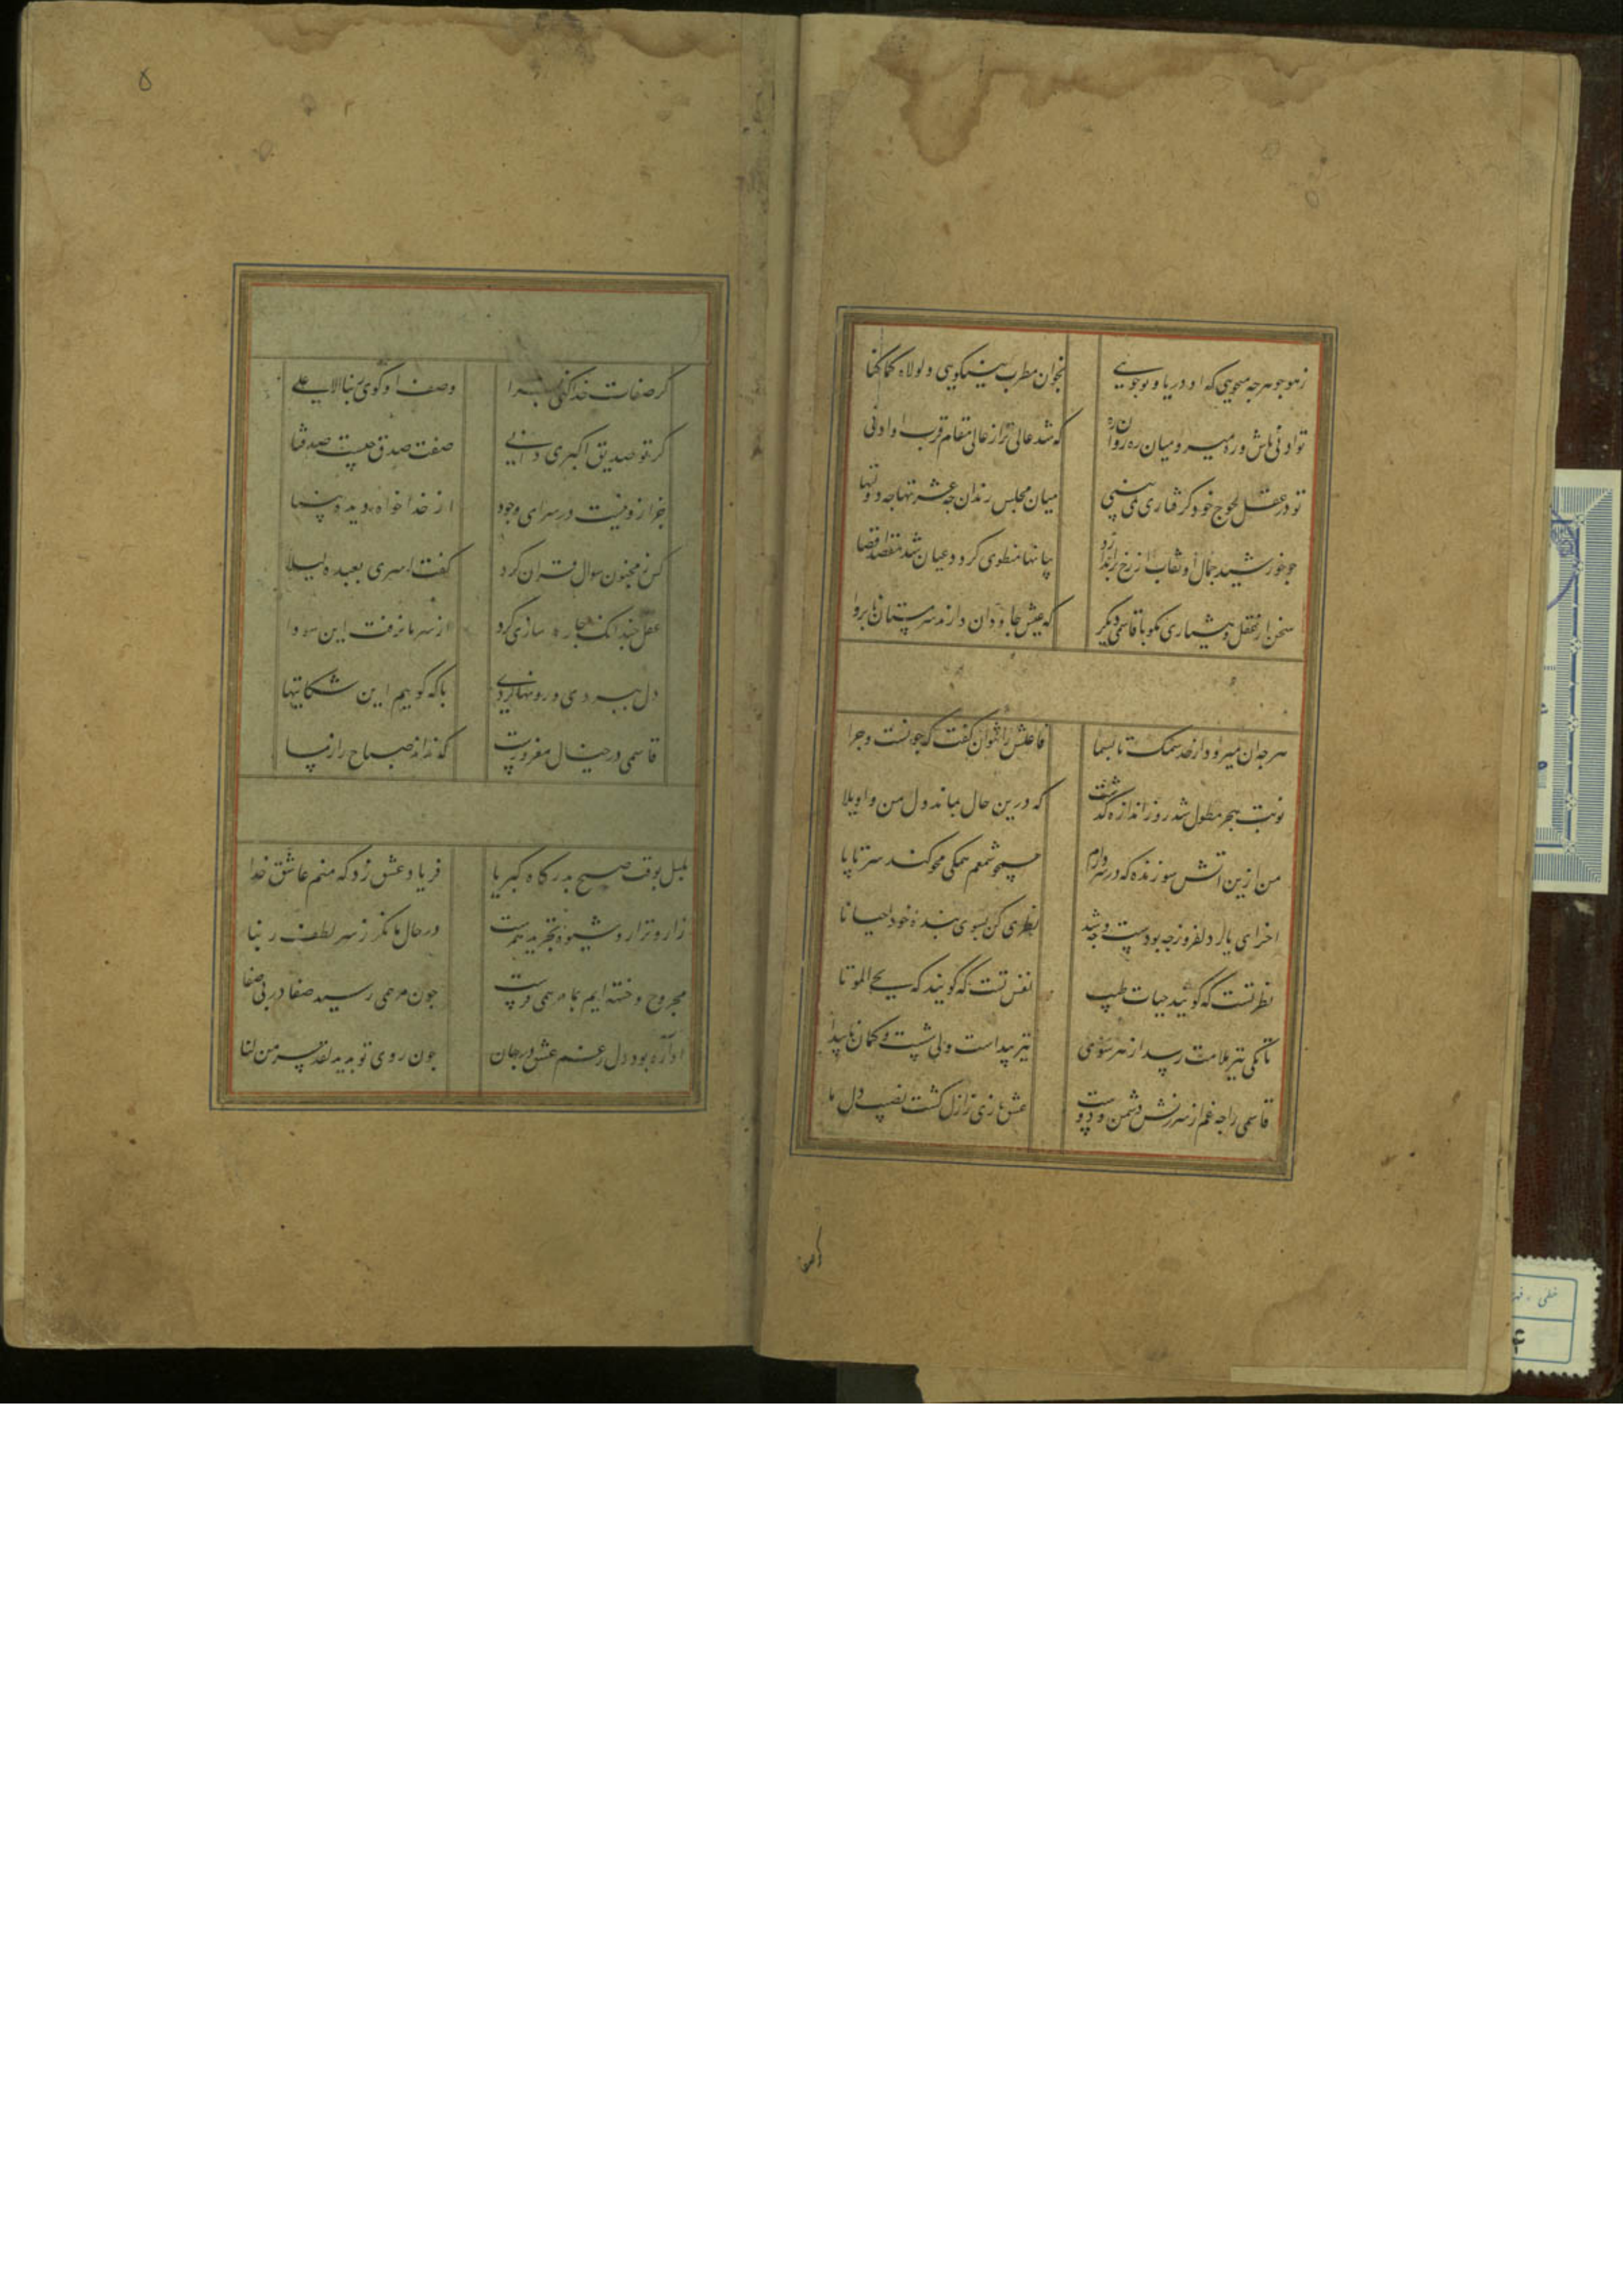 زهو جو هرچه میجویی که او دریا و تو جویی
بخوان مطرب نیکویی و لولاه لما کنا
تو ادنی باش و ره میرو میان ره روان
که شد عالی‌تر از عالی مقام قرب او ادنی
تو در عقل لجوج خود گرفتاری نمی‌بینی
میان مجلس رندان چه عشرتها چه
جو خورشید جمال او نقاب از رخ براندازد
منطوی گردد عیان شد مقصد اقصا
سخن از عقل و هشیاری مگو با قاسمی دیگر
که عیش جاودان دارند سرمستان
هرچه آن میرود از حد سمک تا بسما
فاعلش را نتوان گفت که چونست و چرا
نوبت هجر مطول شد و ز اندازه گذشت
که درین حال بماند دل من واویلا
من ازین آتش سوزنده که در سر دارم
همچو شمعم همگی محو کند سر تا پا
اخر ای یار دلفروز چه بودست و چه شد
نظری کن بسوی بنده خود احیانا
نظر تست که گویند حیات طیب
نفس تست که گویند که یحیی الموتا
تا بکی تیر ملامت رسد از هر سویی
تیر پیداست ولی شست و کمان ناپیدا
قاسمی را چه غم از سرزنش دشمن و دوست
عشق بازی ز ازل گشت نصیب دل ما
۵
کر صفات خدا کنی
وصف او کوی ربنا الاعلی
کر تو صدیق اکبری دانی
صفت صدق چیست صدقنا
جز ازو نیست در سرای وجود
از خدا خواه دیده بینا
کس ز مجنون سوال قران کرد
کفت اسری بعبده لیلا
عقل چندانک چاره سازی کرد
از سر ما نرفت این سودا
دل ببردی و رو نهان کردی
با که کوییم این شکایتها
قاسمی در خیال مغرورست
که نداند صباح را ز مسا
بلبل بوقت صبح بدرکاه کبریا
فریاد عشق زد که منم عاشق خدا
زار و نزار و شیوه تجرید همرهست
در حال ما نکر ز سر لطف ربنا
مجروح و خسته ایم بما مرهمی فرست
چون مرهمی رسید صفا در پی صفا
اواره بود دل ز غم عشق در جهان
چون روی تو بدید